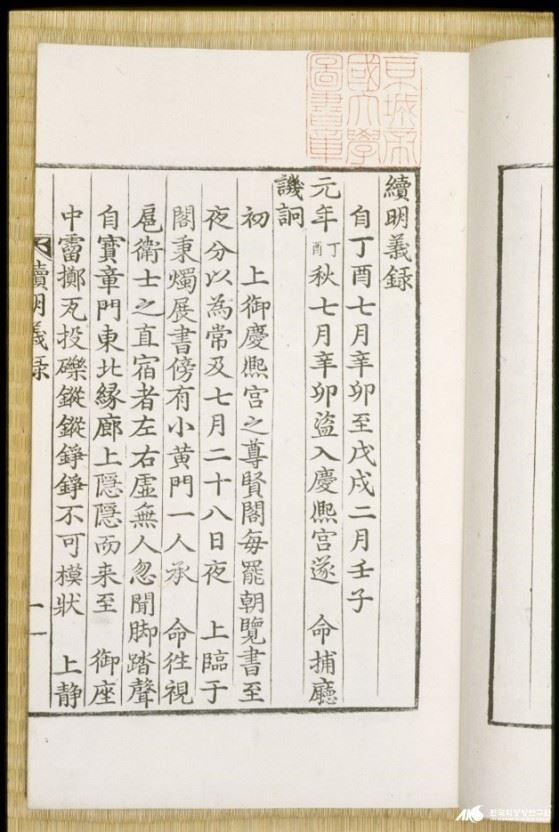 京城帝
國大學
圖書章
續明義録
自丁酉七月辛卯至戊戌二月壬子
元年丁酉秋七月辛卯盗入慶熈宫遂 命捕廳
譏詗
初 上御慶熈宫之尊賢閣每罷朝覽書至
夜分以為常及七月二十八日夜 上臨于
閣秉燭展書傍有小黄門一人承 命徃視
扈衛士之直宿者左右虛無人忽聞脚踏聲
自寶章門東北緣廊上隱隱而来至 御座
中霤擲瓦投礫鏦鏦錚錚不可模狀 上静
續明義録 一
한국학중앙연구원